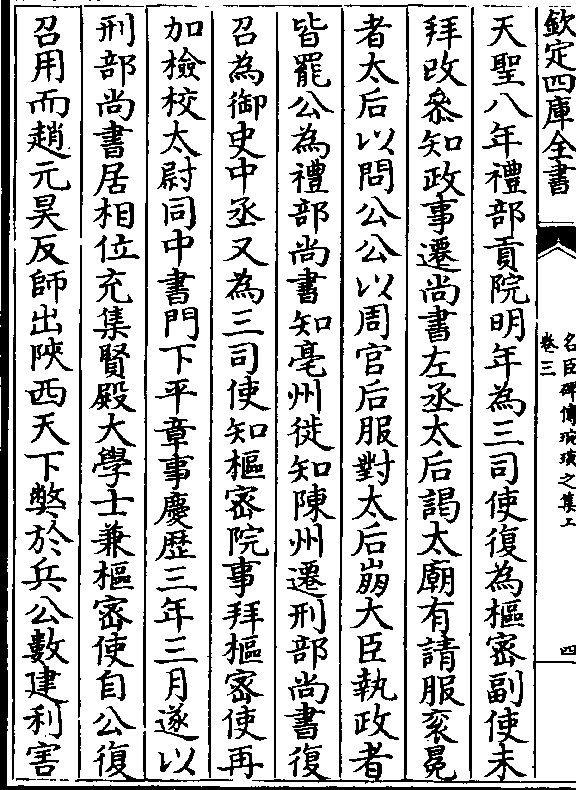 欽定四庫全書
名臣碑傳琬琰之集上
卷三
四
天聖八年禮部貢院明年為三司使復為樞密副使未
拜改參知政事遷尚書左丞太后謁太廟有請服衮冕
者太后以問公公以周官后服對太后崩大臣執政者
皆罷公為禮部尚書知亳州徙知陳州遷刑部尚書復
召為御史中丞又為三司使知樞密院事拜樞密使再
加檢校太尉同中書門下平章事慶歷三年三月遂以
刑部尚書居相位充集賢殿大學士兼樞密使自公復
召用而趙元昊反師出陝西天下弊於兵公數建利害